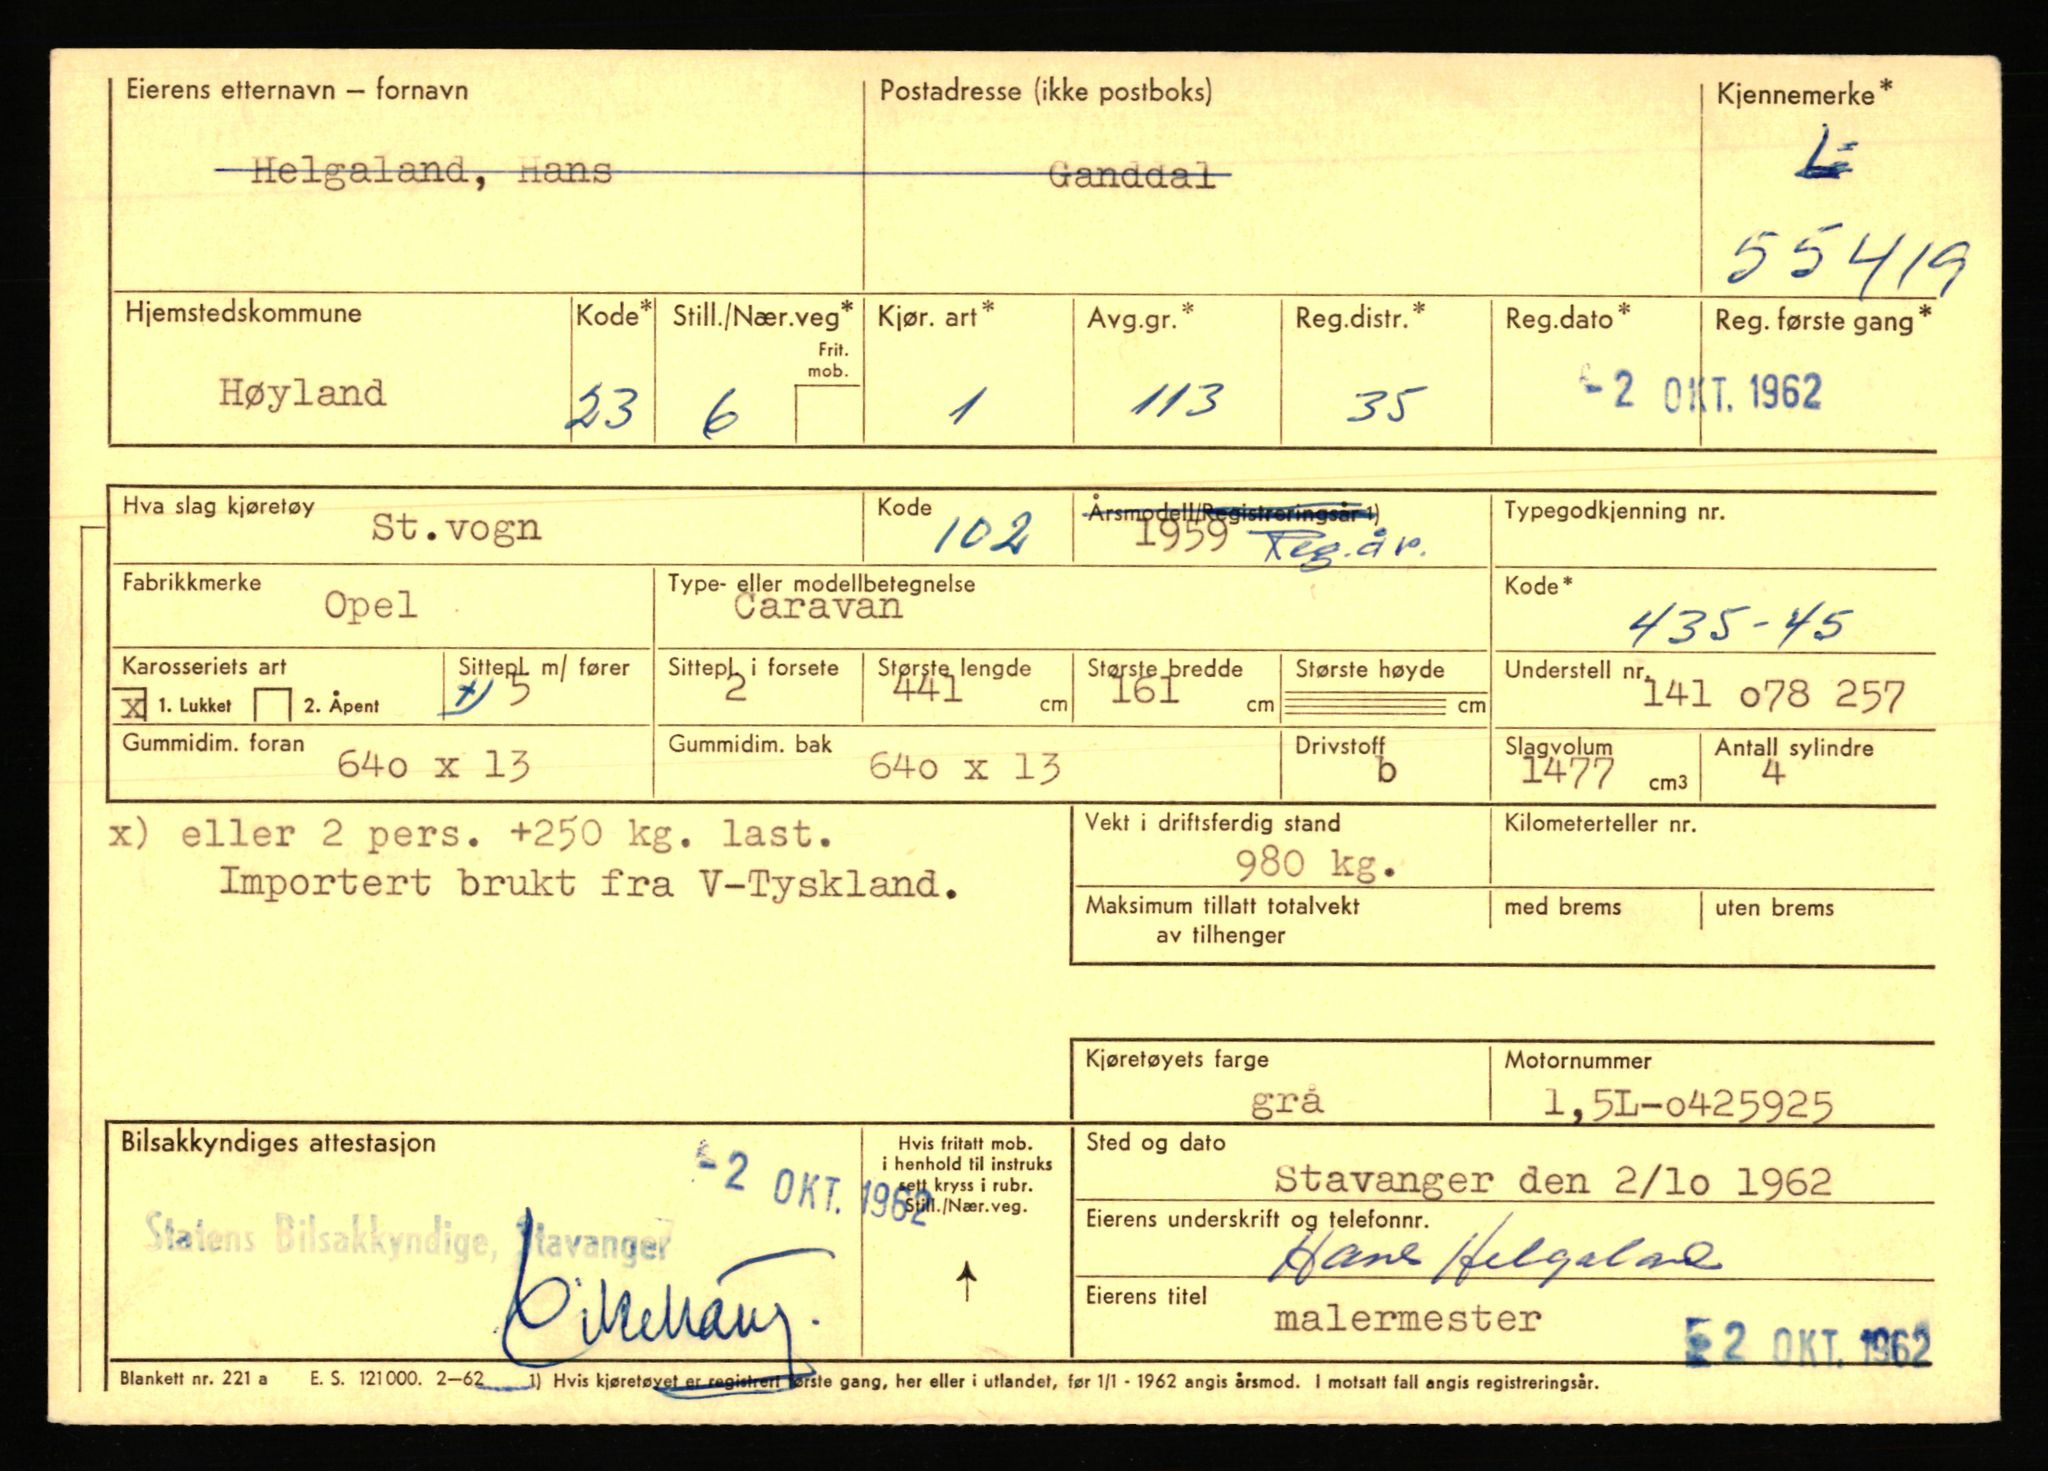 Eierens etternavn – fornavn Postadresse (ikke postboks) Kjennemerke*
Helgaland, Hans Ganddal L
55419
Hjemstedskommune Kode* Still./Nær.veg* Kjør. art* Avg.gr.* Reg.distr.* Reg.dato* Reg. første gang*
Frit.
mob.
Høyland 23 6 1 113 35 -2 OKT. 1962
Hva slag kjøretøy Kode Årsmodell/Registreringsår 1) Typegodkjenning nr.
St.vogn 102 1959 Reg.år.
Fabrikkmerke Type- eller modellbetegnelse Kode*
Opel Caravan 435-45
Karosseriets art Sittepl. m/ fører Sittepl. i forsete Største lengde Største bredde Største høyde Understell nr.
x 1. Lukket 2. Åpent x) 5 2 441 cm 161 cm cm 141 o78 257
Gummidim. foran Gummidim. bak Drivstoff Slagvolum Antall sylindre
64o x 13 64o x 13 b 1477 cm3 4
x) eller 2 pers. +250 kg. last. Vekt i driftsferdig stand Kilometerteller nr.
Importert brukt fra V-Tyskland. 980 kg.
Maksimum tillatt totalvekt med brems uten brems
av tilhenger
Kjøretøyets farge Motornummer
grå 1,5L-o425925
Bilsakkyndiges attestasjon Hvis fritatt mob. Sted og dato
i henhold til instruks
sett kryss i rubr.
Still./Nær.veg.
-2 OKT. 1962 Stavanger den 2/1o 1962
Statens Bilsakkyndige, Stavanger Eierens underskrift og telefonnr.
Hans Helgaland
Eierens titel
malermester
-2 OKT. 1962
Blankett nr. 221 a E. S. 121000. 2–62 1) Hvis kjøretøyet er registrert første gang, her eller i utlandet, før 1/1 - 1962 angis årsmod. I motsatt fall angis registreringsår.